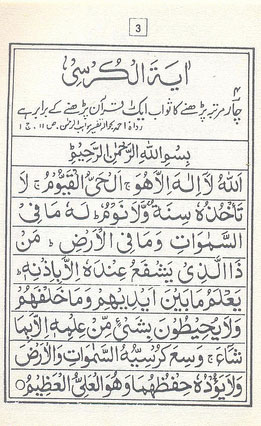 3
آیة الکرسی
۴
چار مرتبہ پڑھنے کا ثواب ایک قرآن پڑھنے کے برابر ہے
رواہ احمد بحوالہ تفسیر مواہب الرحمن۔ ص ۱۱، ج ۱
بِسْمِ اللهِ الرَّحْمٰنِ الرَّحِيْمِ
اَللهُ لَآ اِلٰهَ اِلَّا هُوَ ۚ اَلْحَیُّ الْقَيُّوْمُ ۚ لَا
تَأْخُذُهٗ سِنَةٌ وَّلَا نَوْمٌ ؕ لَهٗ مَا فِی
السَّمٰوٰتِ وَمَا فِی الْاَرْضِ ؕ مَنْ
ذَا الَّذِیْ يَشْفَعُ عِنْدَهٗ اِلَّا بِاِذْنِهٖ ؕ
يَعْلَمُ مَا بَيْنَ اَيْدِيْهِمْ وَمَا خَلْفَهُمْ
وَلَا يُحِيْطُوْنَ بِشَیْءٍ مِّنْ عِلْمِهٖٓ اِلَّا بِمَا
شَآءَ ۚ وَسِعَ كُرْسِيُّهُ السَّمٰوٰتِ وَالْاَرْضَ
وَلَا يَؤُدُهٗ حِفْظُهُمَا وَهُوَ الْعَلِیُّ الْعَظِيْمُ ○